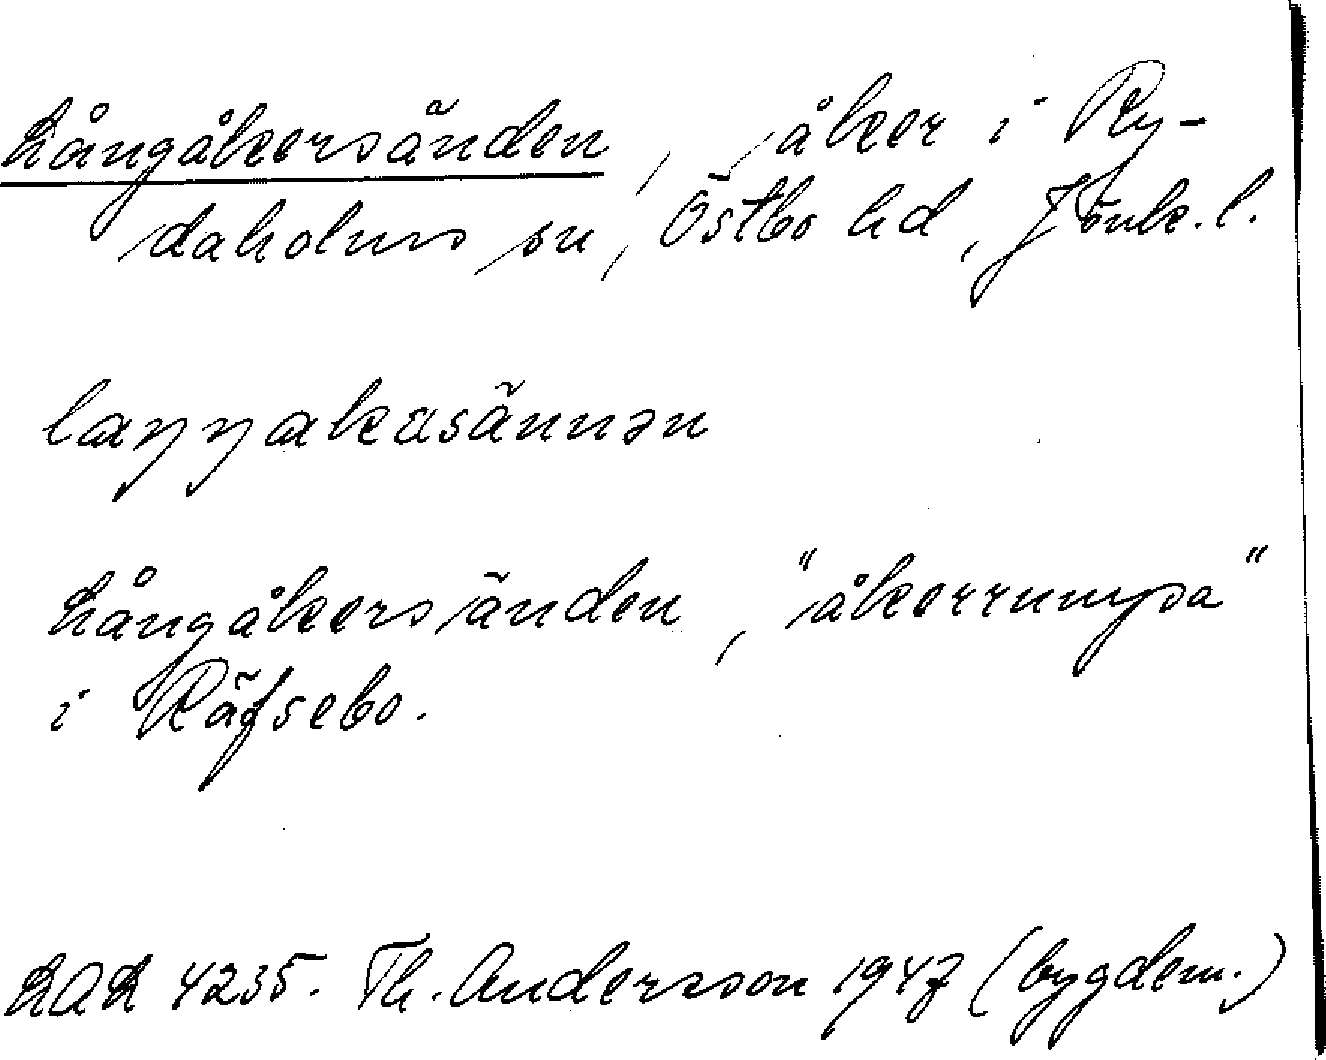 Långåkersänden, åker i Ry-
daholms sn, Östbo hd, Jönk. l.
laŋŋakasännən
Långåkersänden, "åkerrumpa"
i Räfsebo.
LAL 4235. Th. Andersson 1947 (bygdem.)